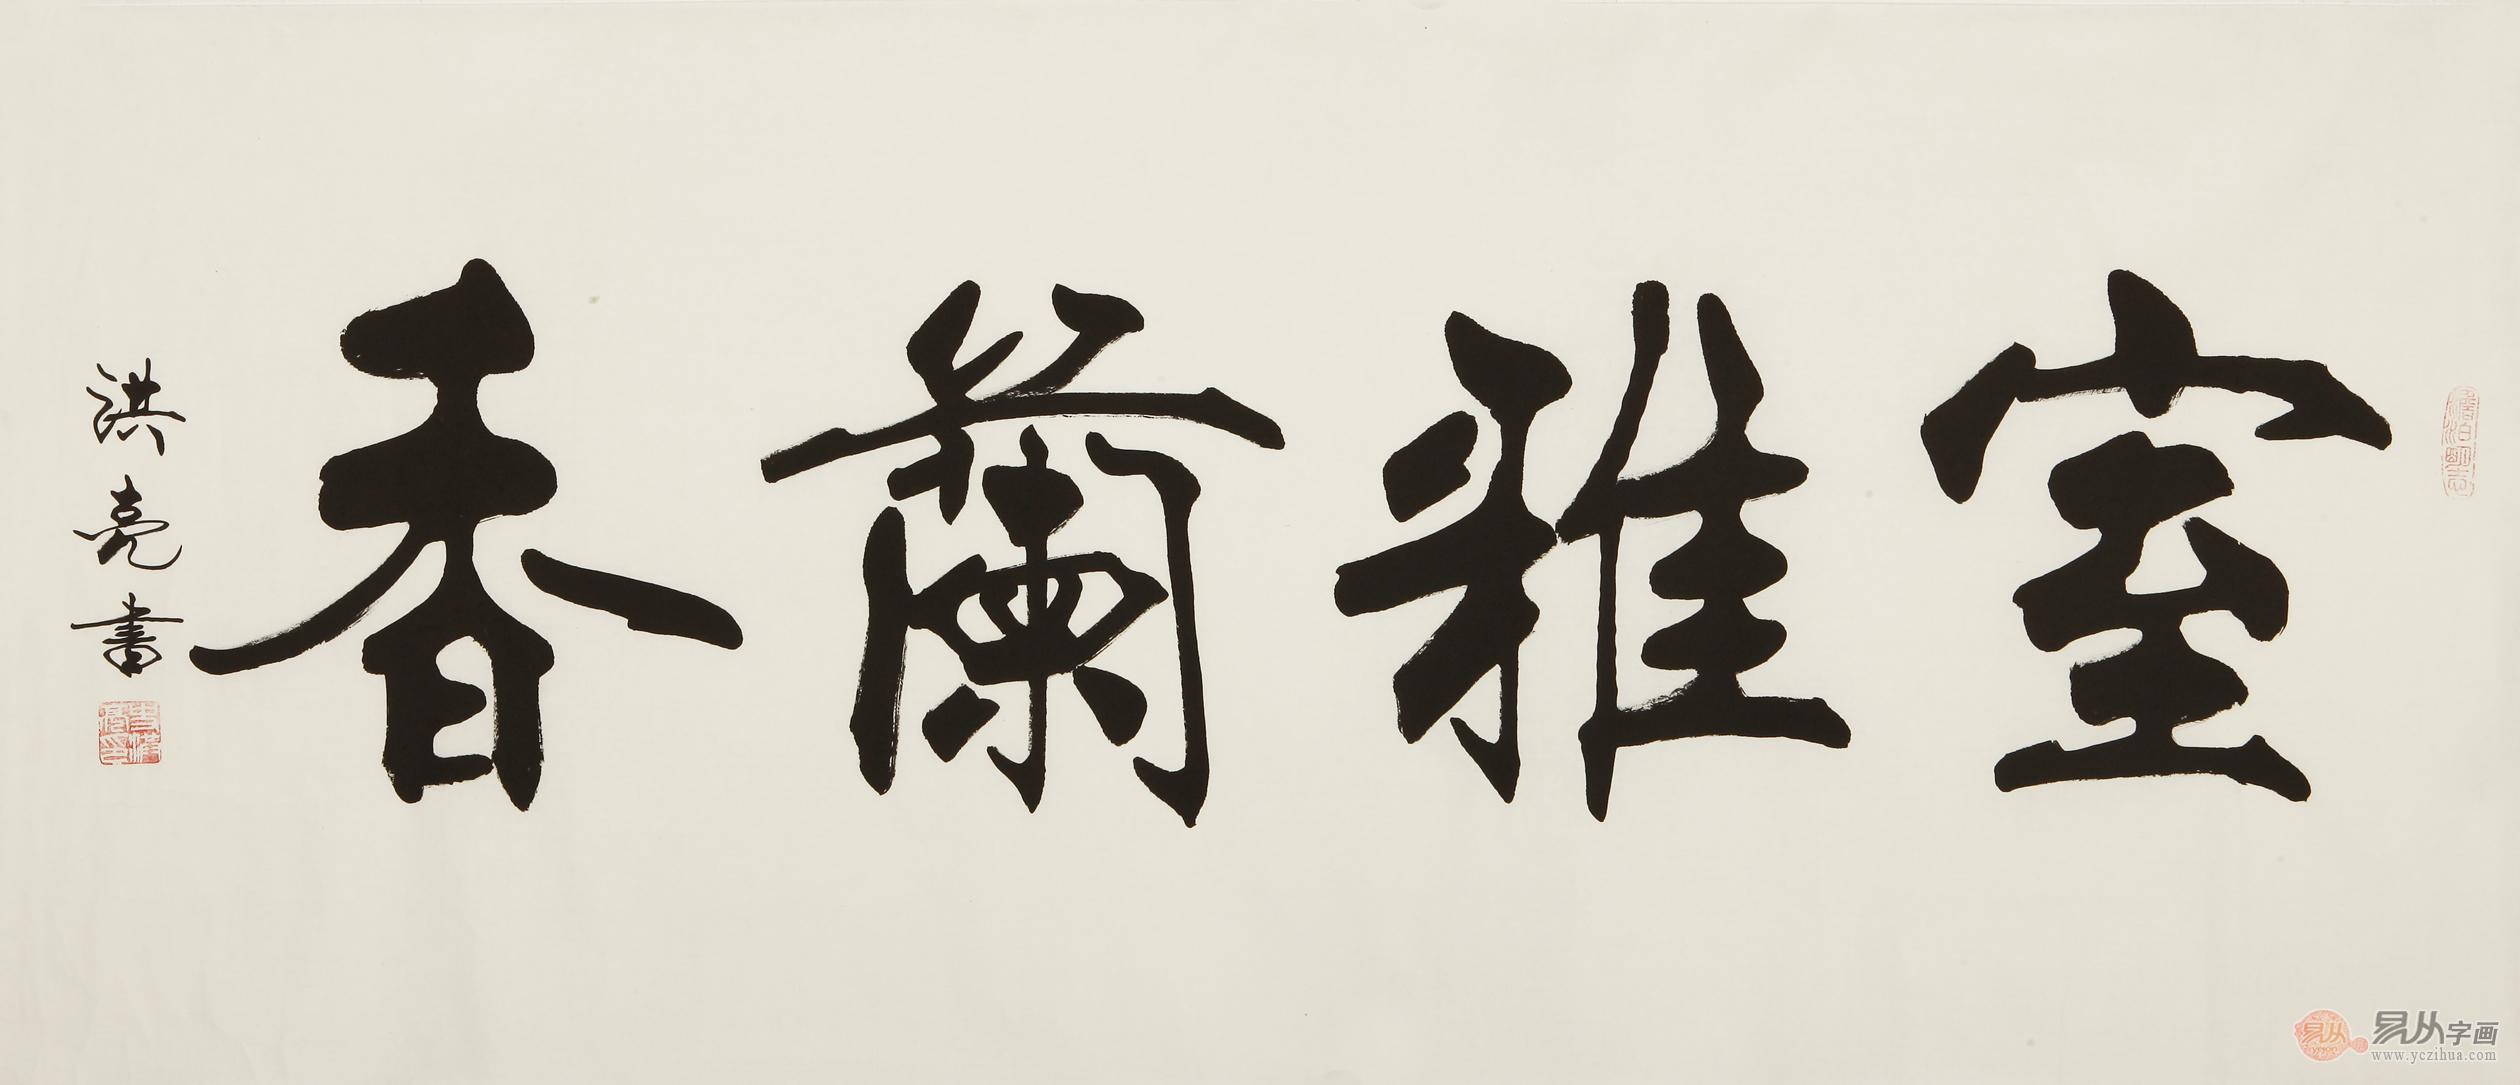 室雅蘭香
洪亮書
易从字画
www.yczihua.com